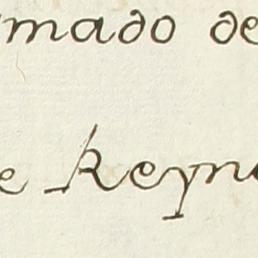 mado de
e Reyn